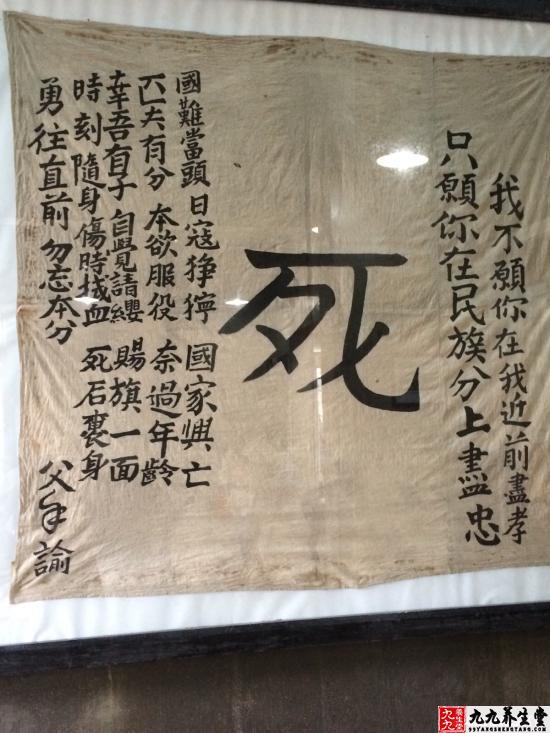 我不願你在我近前盡孝
只願你在民族分上盡忠
死
國難當頭 日寇猙獰 國家興亡
匹夫有分 本欲服役 奈過年齡
幸吾有子 自覺請纓 賜旗一面
時刻隨身 傷時拭血 死后裹身
勇往直前 勿忘本分
父手諭
九九养生堂
99YANGSHENGTANG.COM